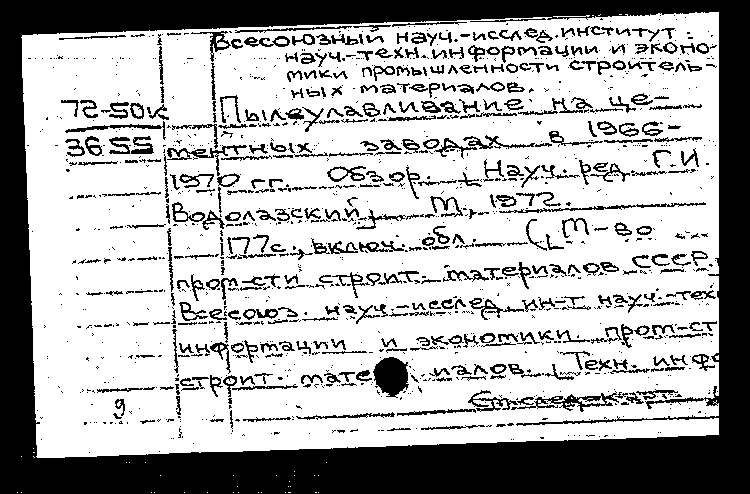 Всесоюзный науч.-исслед. институт
науч.-техн. информации и эконо-
мики промышленности строитель-
ных материалов.
72-50к
3655
Пылеулавливание на це-
ментных заводах в 1966-
1970 гг. Обзор. [Науч. ред. Г.И.
Водолазский]. М., 1972.
177с., включ. обл. ([М-во
пром-сти строит. материалов СССР.
Всесоюз. науч.-исслед. ин-т науч.-техн
информации и экономики пром-ст
строит. материалов. [Техн. инфо
См. след. карт.
9